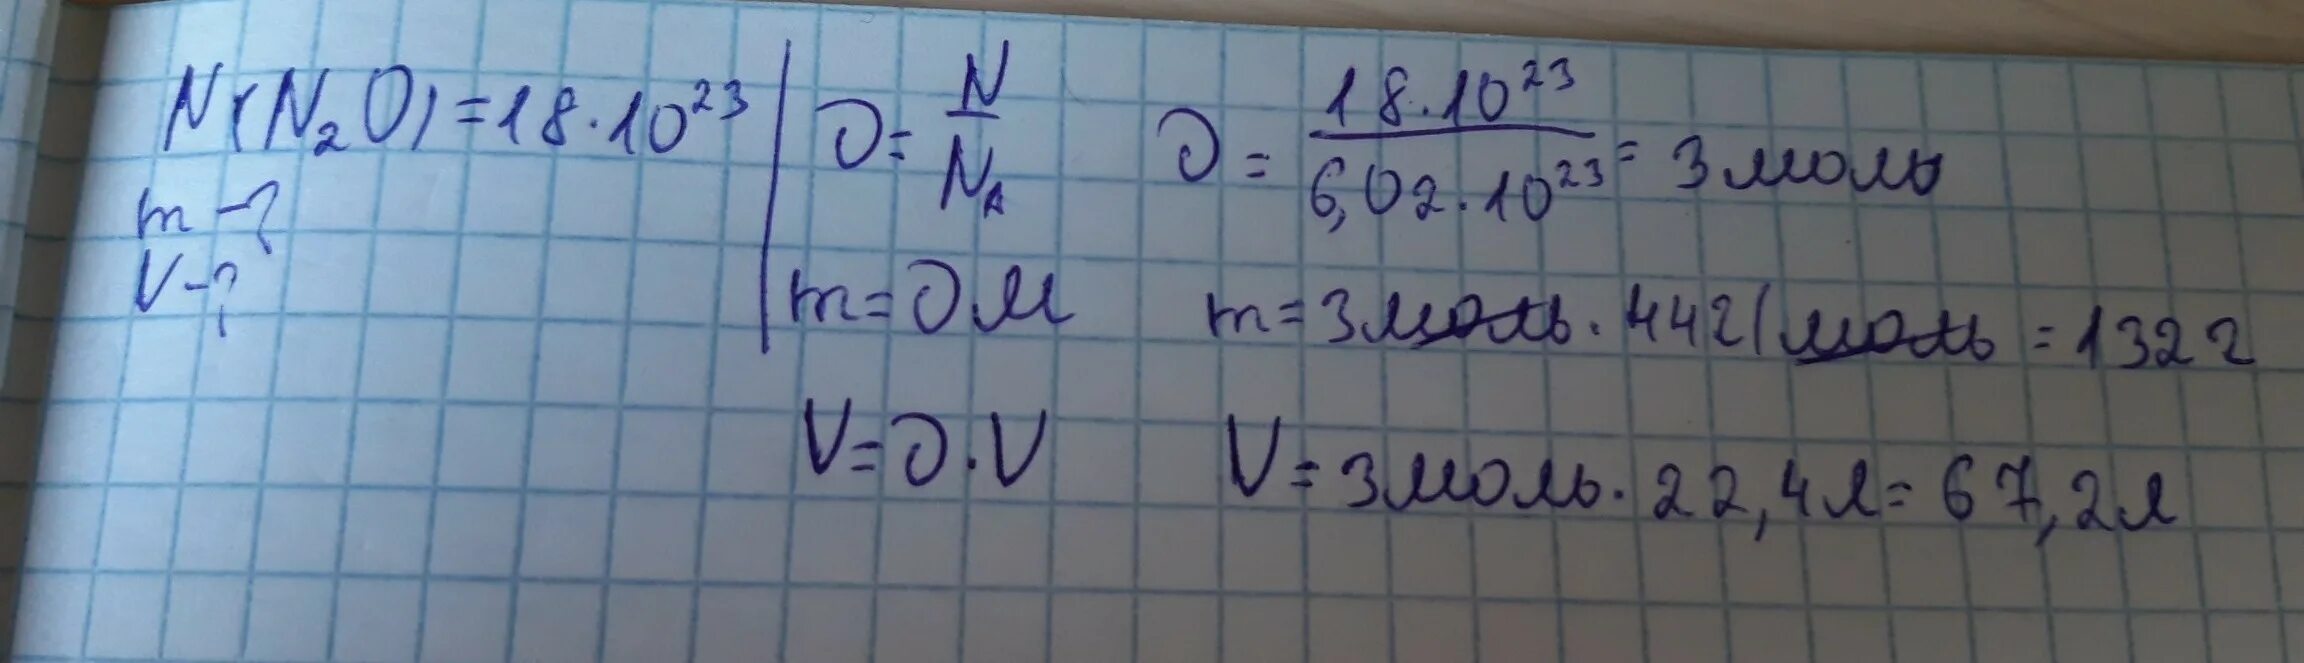 N(N₂O) = 18·10²³
m - ?
V - ?
υ = N/Nₐ
m = υM
V = υ·V
υ = 18·10²³ / 6,02·10²³ = 3 моль
m = 3 моль · 44 г/моль = 132 г
V = 3 моль · 22,4 л = 67,2 л